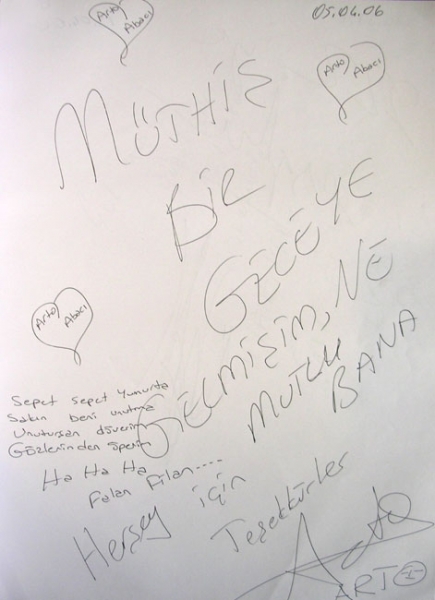 Arto Abacı
05.04.06
Arto Abacı
MÜTHİŞ
BİR
GECEYE
GELMİŞİM, NE
MUTLU
BANA
Arto Abacı
Sepet Sepet Yumurta
Sakın beni unutma
Unutursan döverim
Gözlerinden öperim
Ha Ha Ha
Falan Filan....
Herşey için
Teşekkürler
ARTO